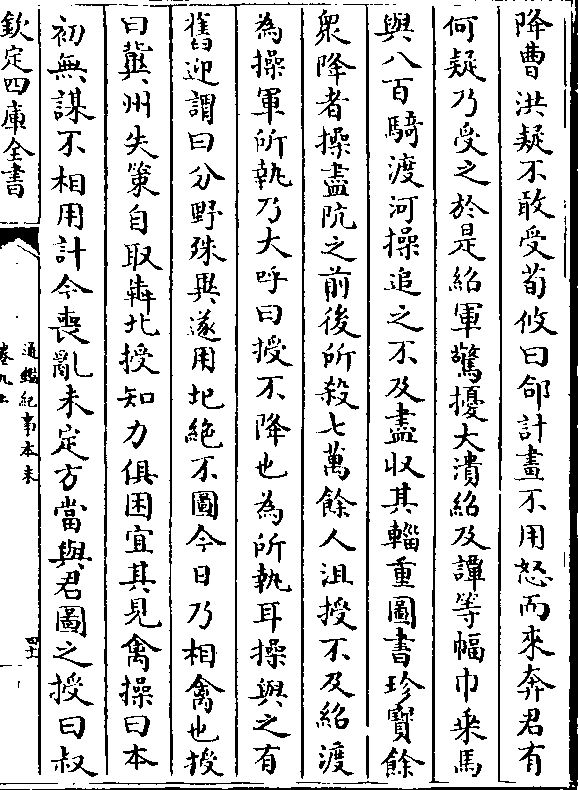 降曹洪疑不敢受荀攸曰郃計畫不用怒而來奔君有
何疑乃受之於是紹軍驚擾大潰紹及譚等幅巾乗馬
與八百騎渡河操追之不及盡収其輜重圖書珍寳餘
衆降者操盡阬之前後所殺七萬餘人沮授不及紹渡
為操軍所執乃大呼曰授不降也為所執耳操與之有
舊迎謂曰分野殊異遂用圮絶不圖今日乃相禽也授
曰冀州失策自取奔北授知力俱困宜其見禽操曰本
初無謀不相用計今喪亂未定方當與君圖之授曰叔
欽定四庫全書
通鑑紀事本末
卷九上